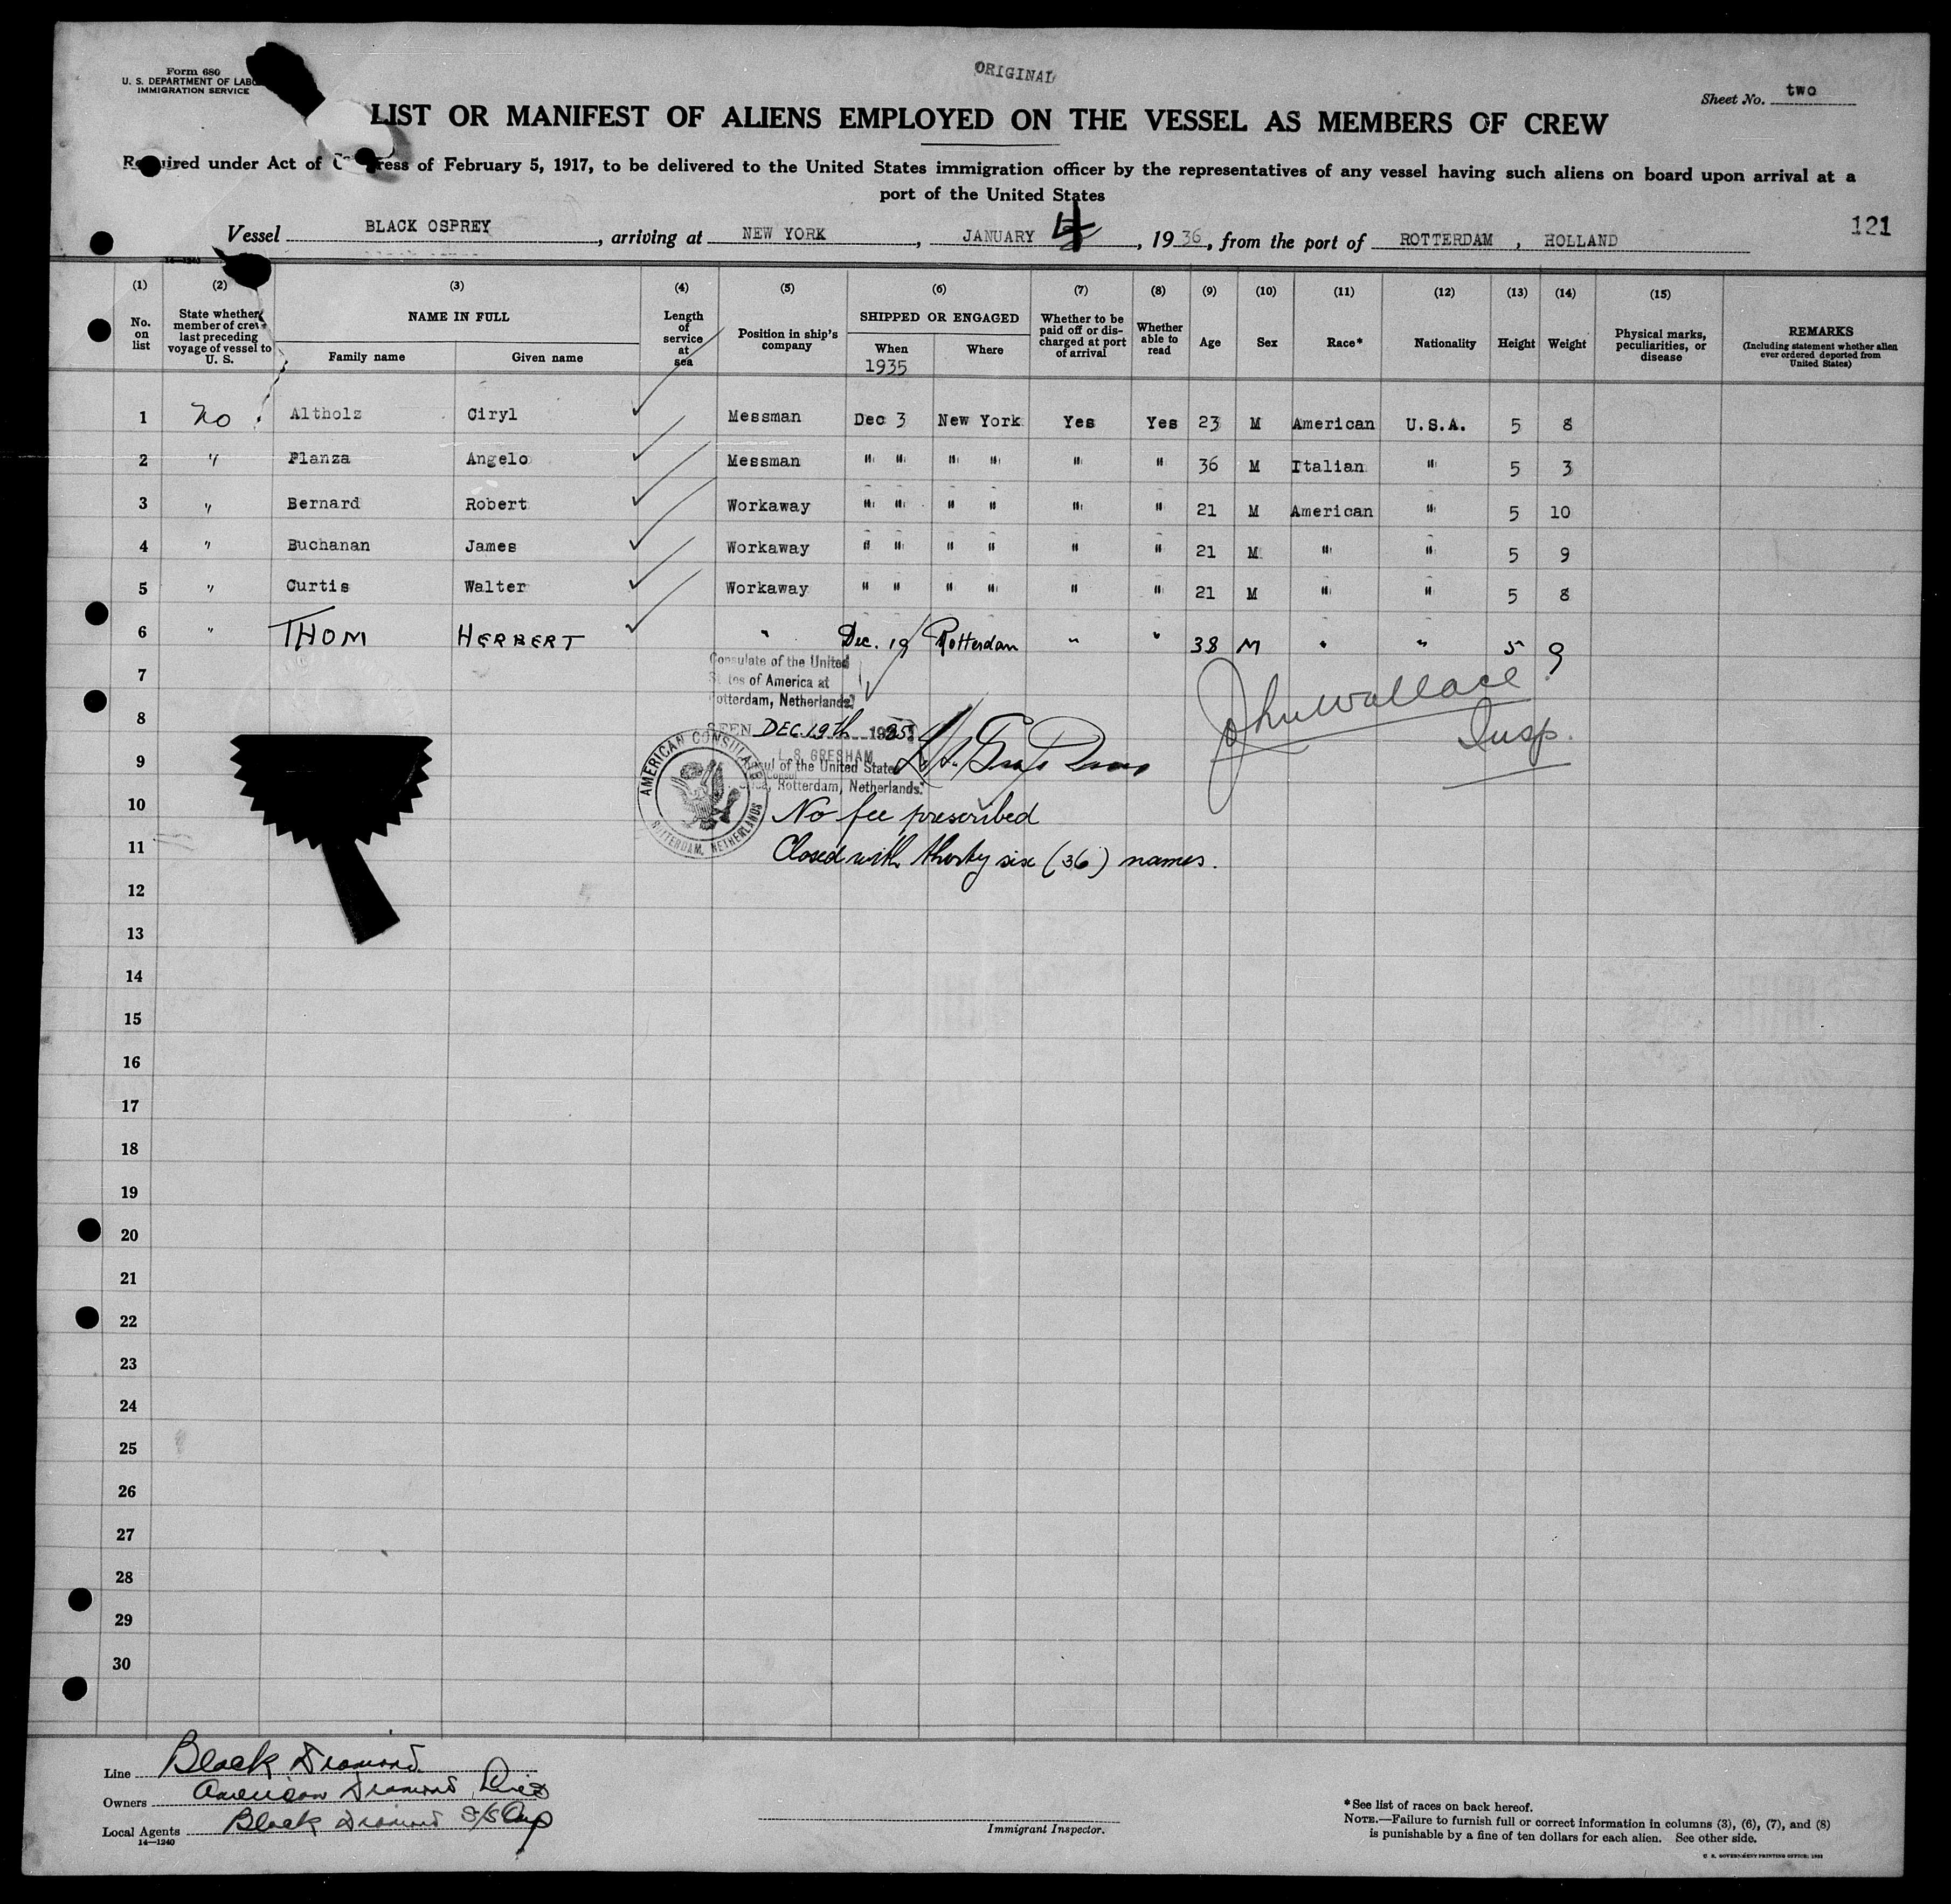 Form 680
U. S. DEPARTMENT OF LABO
IMMIGRATION SERVICE
ORIGINAL
Sheet No. two
LIST OR MANIFEST OF ALIENS EMPLOYED ON THE VESSEL AS MEMBERS OF CREW
Required under Act of Congress of February 5, 1917, to be delivered to the United States immigration officer by the representatives of any vessel having such aliens on board upon arrival at a
port of the United States
Vessel BLACK OSPREY, arriving at NEW YORK, JANUARY 4, 1936, from the port of ROTTERDAM, HOLLAND
121
(1) (2) (3) (4) (5) (6) (7) (8) (9) (10) (11) (12) (13) (14) (15)
No. on list
State whether member of crew last preceding voyage of vessel to U. S.
NAME IN FULL
Family name Given name
Length of service at sea
Position in ship's company
SHIPPED OR ENGAGED
When Where
1935
Whether to be paid off or discharged at port of arrival
Whether able to read
Age
Sex
Race*
Nationality
Height
Weight
Physical marks, peculiarities, or disease
REMARKS
(Including statement whether alien ever ordered deported from United States)
1 No Altholz Ciryl Messman Dec 3 New York Yes Yes 23 M American U.S.A. 5 8
2 " Planza Angelo Messman " " " " " " 36 M Italian " 5 3
3 " Bernard Robert Workaway " " " " " " 21 M American " 5 10
4 " Buchanan James Workaway " " " " " " 21 M " " 5 9
5 " Curtis Walter Workaway " " " " " " 21 M " " 5 8
6 " THOM HERBERT " Dec. 19 Rotterdam " " 38 M " " 5 9
7
Consulate of the United
States of America at
Rotterdam, Netherlands
John Wallace
Insp.
8
SEEN DEC. 19th 1935
9
L. S. GRESHAM
Consul of the United States
Rotterdam, Netherlands.
AMERICAN CONSULATE
ROTTERDAM, NETHERLANDS
10
No fee prescribed
11
Closed with thirty six (36) names.
12
13
14
15
16
17
18
19
20
21
22
23
24
25
26
27
28
29
30
Line Black Diamond
Owners American Diamond Lines
Local Agents Black Diamond S/S Corp
14—1240
Immigrant Inspector.
*See list of races on back hereof.
NOTE.—Failure to furnish full or correct information in columns (3), (6), (7), and (8)
is punishable by a fine of ten dollars for each alien. See other side.
U. S. GOVERNMENT PRINTING OFFICE: 1931